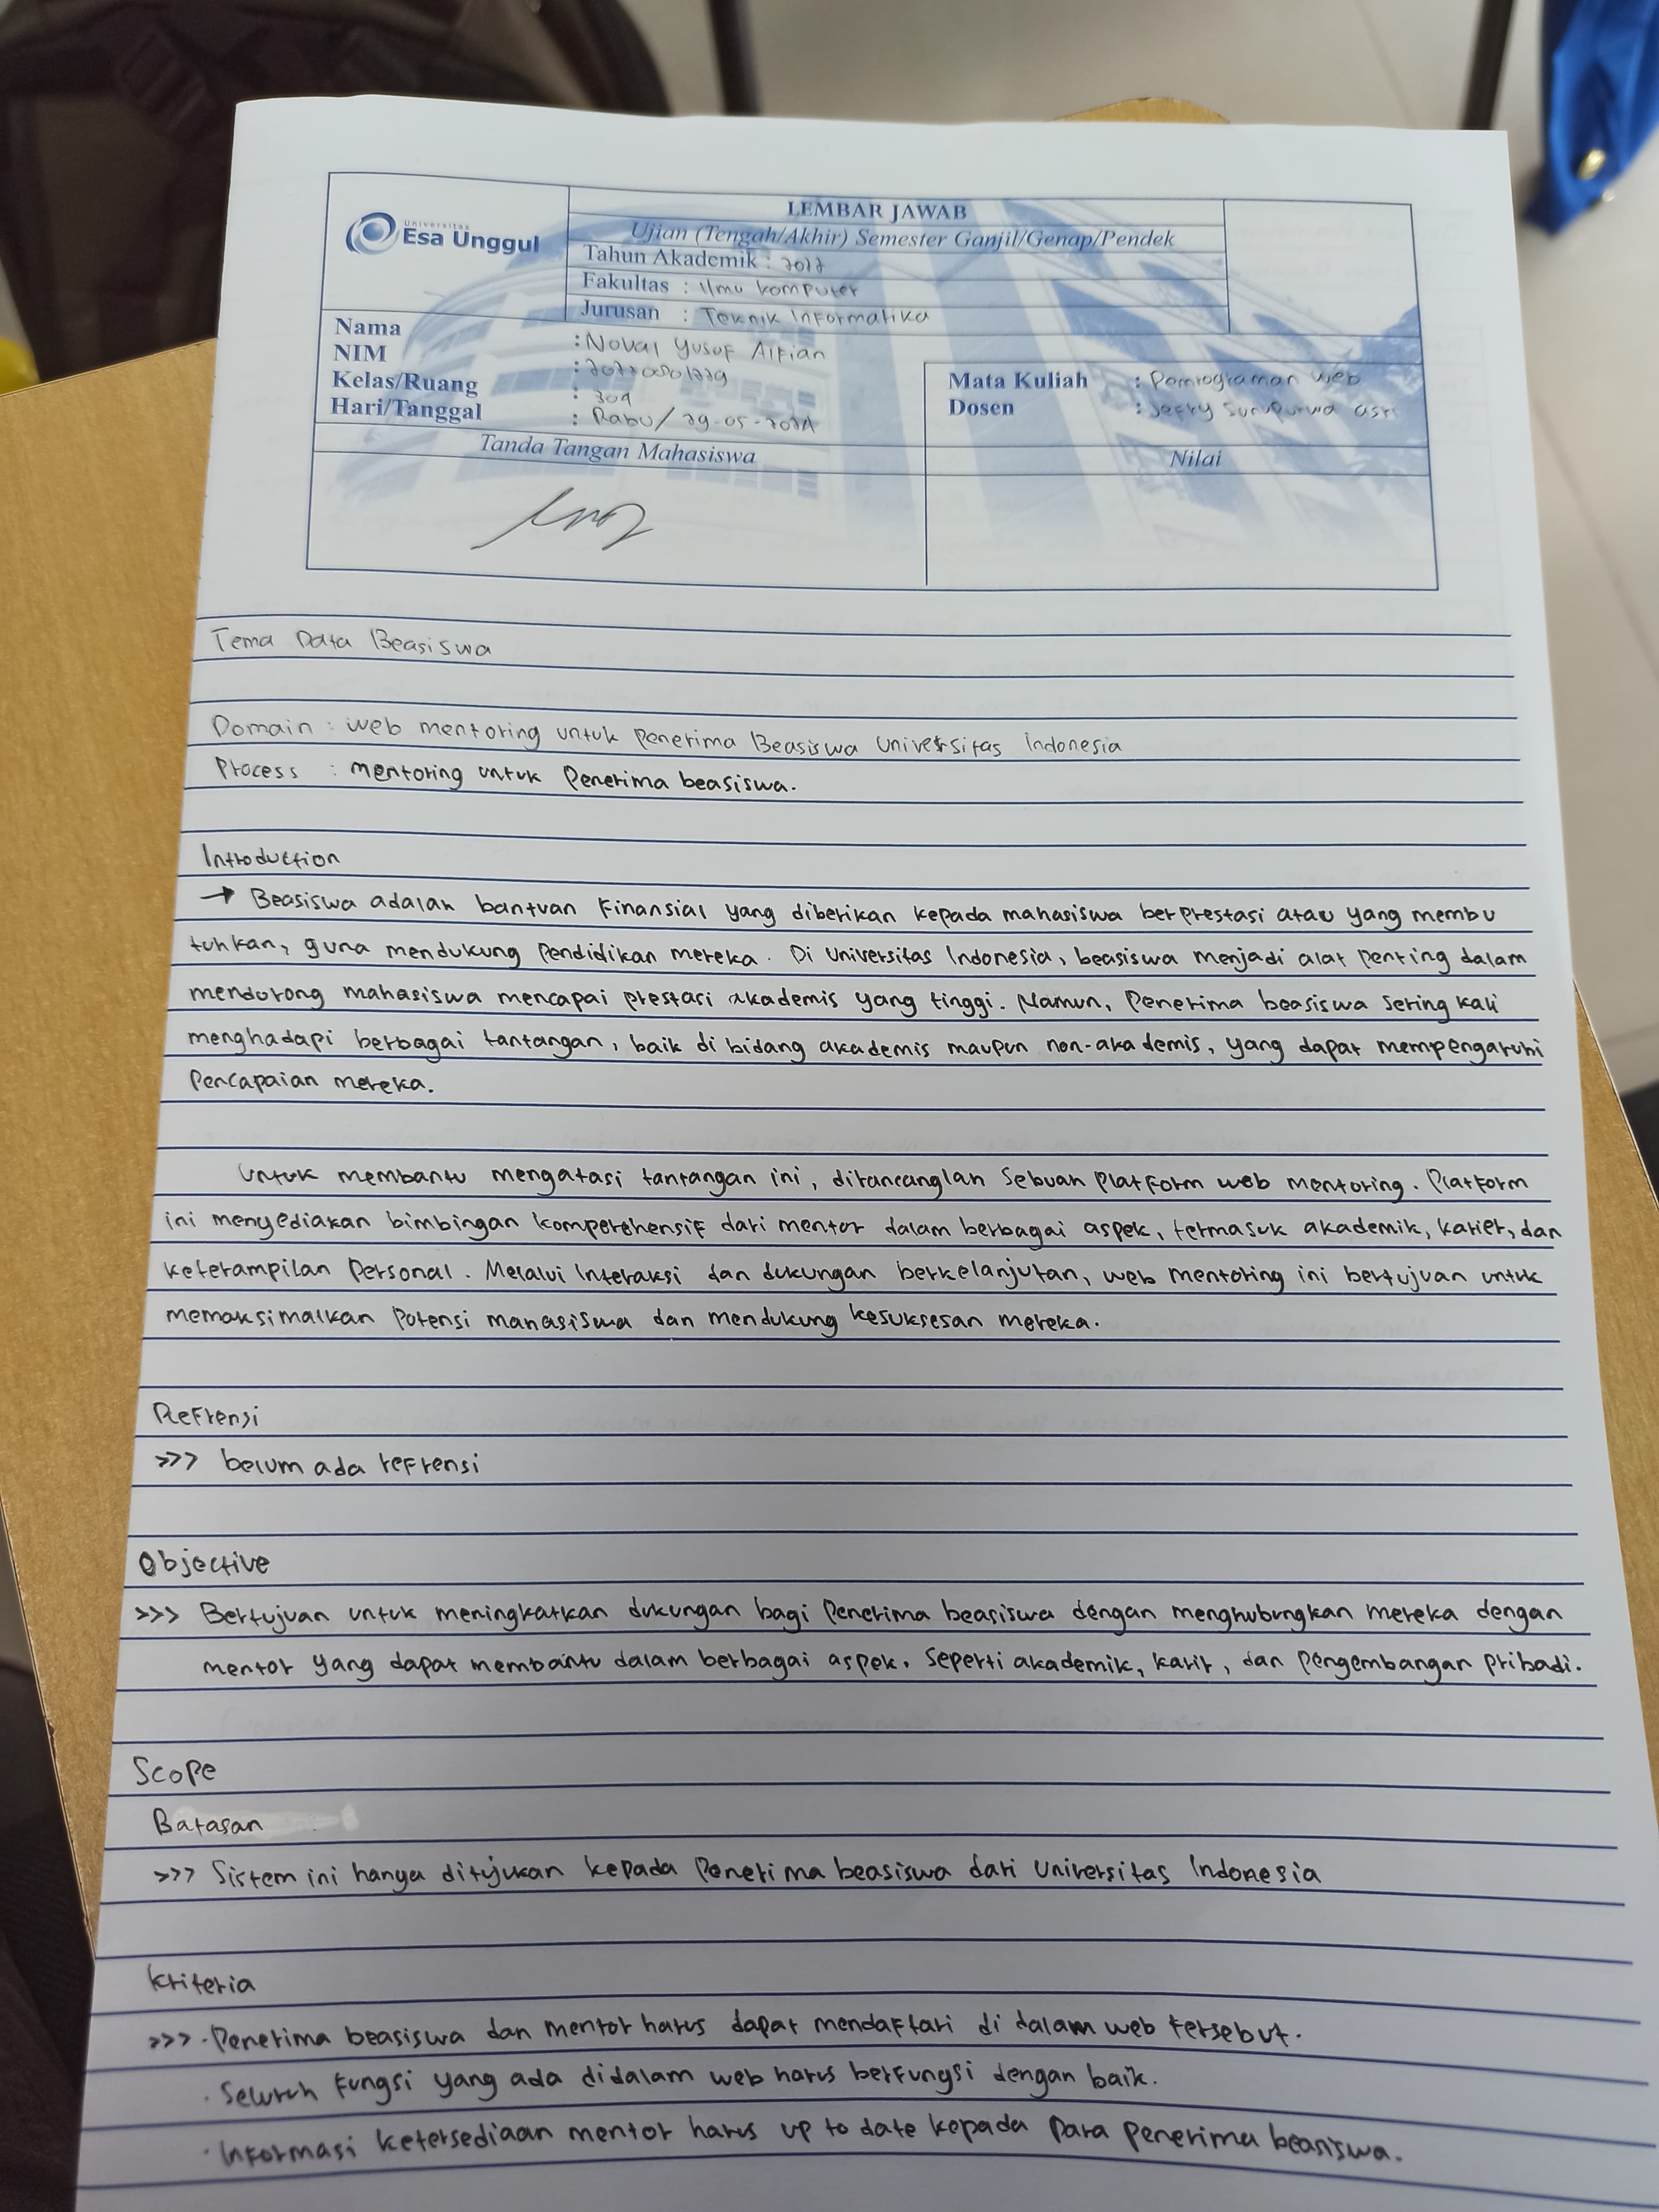 Universitas
Esa Unggul
LEMBAR JAWAB
Ujian (Tengah/Akhir) Semester Ganjil/Genap/Pendek
Tahun Akademik :
Fakultas : Ilmu Komputer
Jurusan : Teknik Informatika
Nama : Noval Yusuf Alfian
NIM :
Kelas/Ruang : 309
Hari/Tanggal : Rabu/ 29-05-2024
Mata Kuliah : Pemrograman Web
Dosen : Jefry
Tanda Tangan Mahasiswa
Nilai
Tema Data Beasiswa
Domain : web mentoring untuk penerima Beasiswa Universitas Indonesia
Process : mentoring untuk penerima beasiswa.
Introduction
→ Beasiswa adalah bantuan finansial yang diberikan kepada mahasiswa berprestasi atau yang membu
tuhkan, guna mendukung pendidikan mereka. Di Universitas Indonesia, beasiswa menjadi alat penting dalam
mendorong mahasiswa mencapai prestasi akademis yang tinggi. Namun, penerima beasiswa sering kali
menghadapi berbagai tantangan, baik di bidang akademis maupun non-akademis, yang dapat mempengaruhi
pencapaian mereka.
Untuk membantu mengatasi tantangan ini, dirancanglah sebuah platform web mentoring. Platform
ini menyediakan bimbingan komperehensif dari mentor dalam berbagai aspek, termasuk akademik, karier, dan
keterampilan personal. Melalui interaksi dan dukungan berkelanjutan, web mentoring ini bertujuan untuk
memaksimalkan potensi mahasiswa dan mendukung kesuksesan mereka.
Refrensi
>>> belum ada refrensi
Objective
>>> Bertujuan untuk meningkatkan dukungan bagi penerima beasiswa dengan menghubungkan mereka dengan
mentor yang dapat membantu dalam berbagai aspek. Seperti akademik, karir, dan pengembangan pribadi.
Scope
Batasan
>>> Sistem ini hanya ditujukan kepada penerima beasiswa dari Universitas Indonesia
Kriteria
>>> · Penerima beasiswa dan mentor harus dapat mendaftari di dalam web tersebut.
· Seluruh fungsi yang ada didalam web harus berfungsi dengan baik.
· Informasi ketersediaan mentor harus up to date kepada para penerima beasiswa.